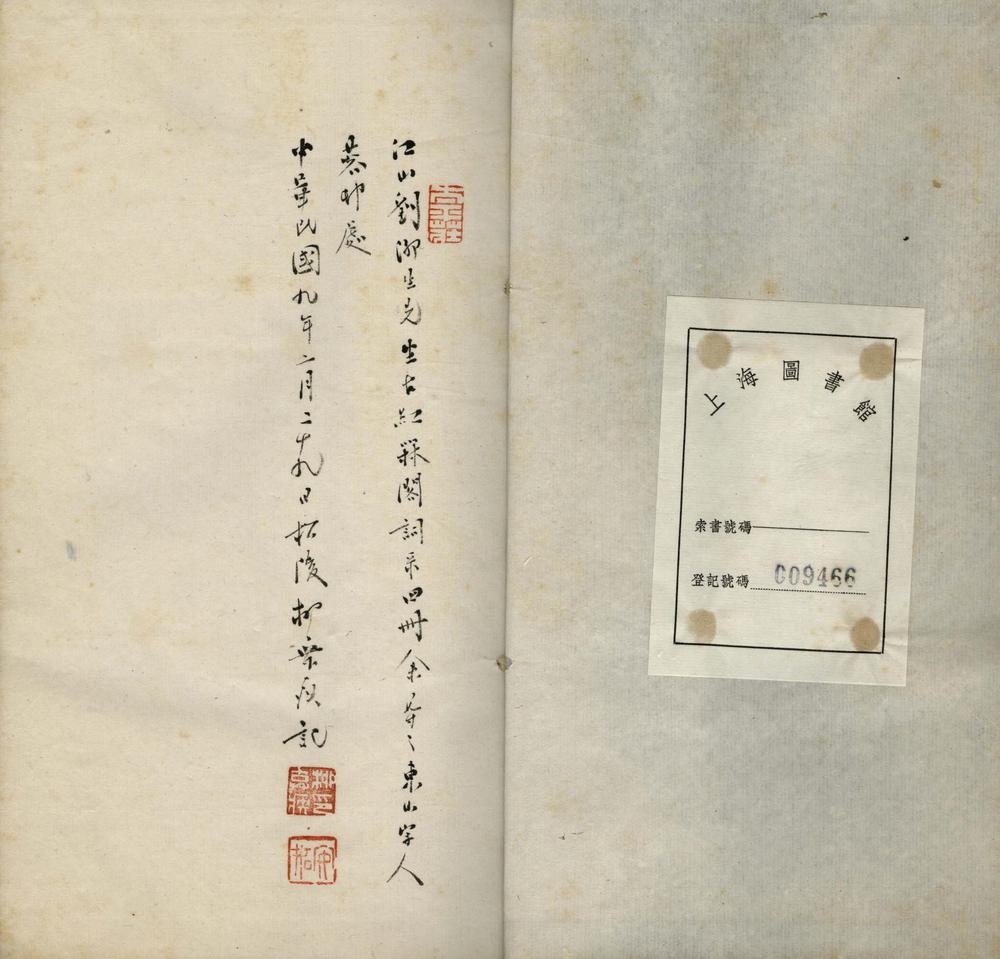 上海圖書館
索書號碼
登記號碼 009466
江山劉泖生先生古紅槑閣詞四冊余東山人
處
中華民國九年二月二十九日松陵柳棄疾記